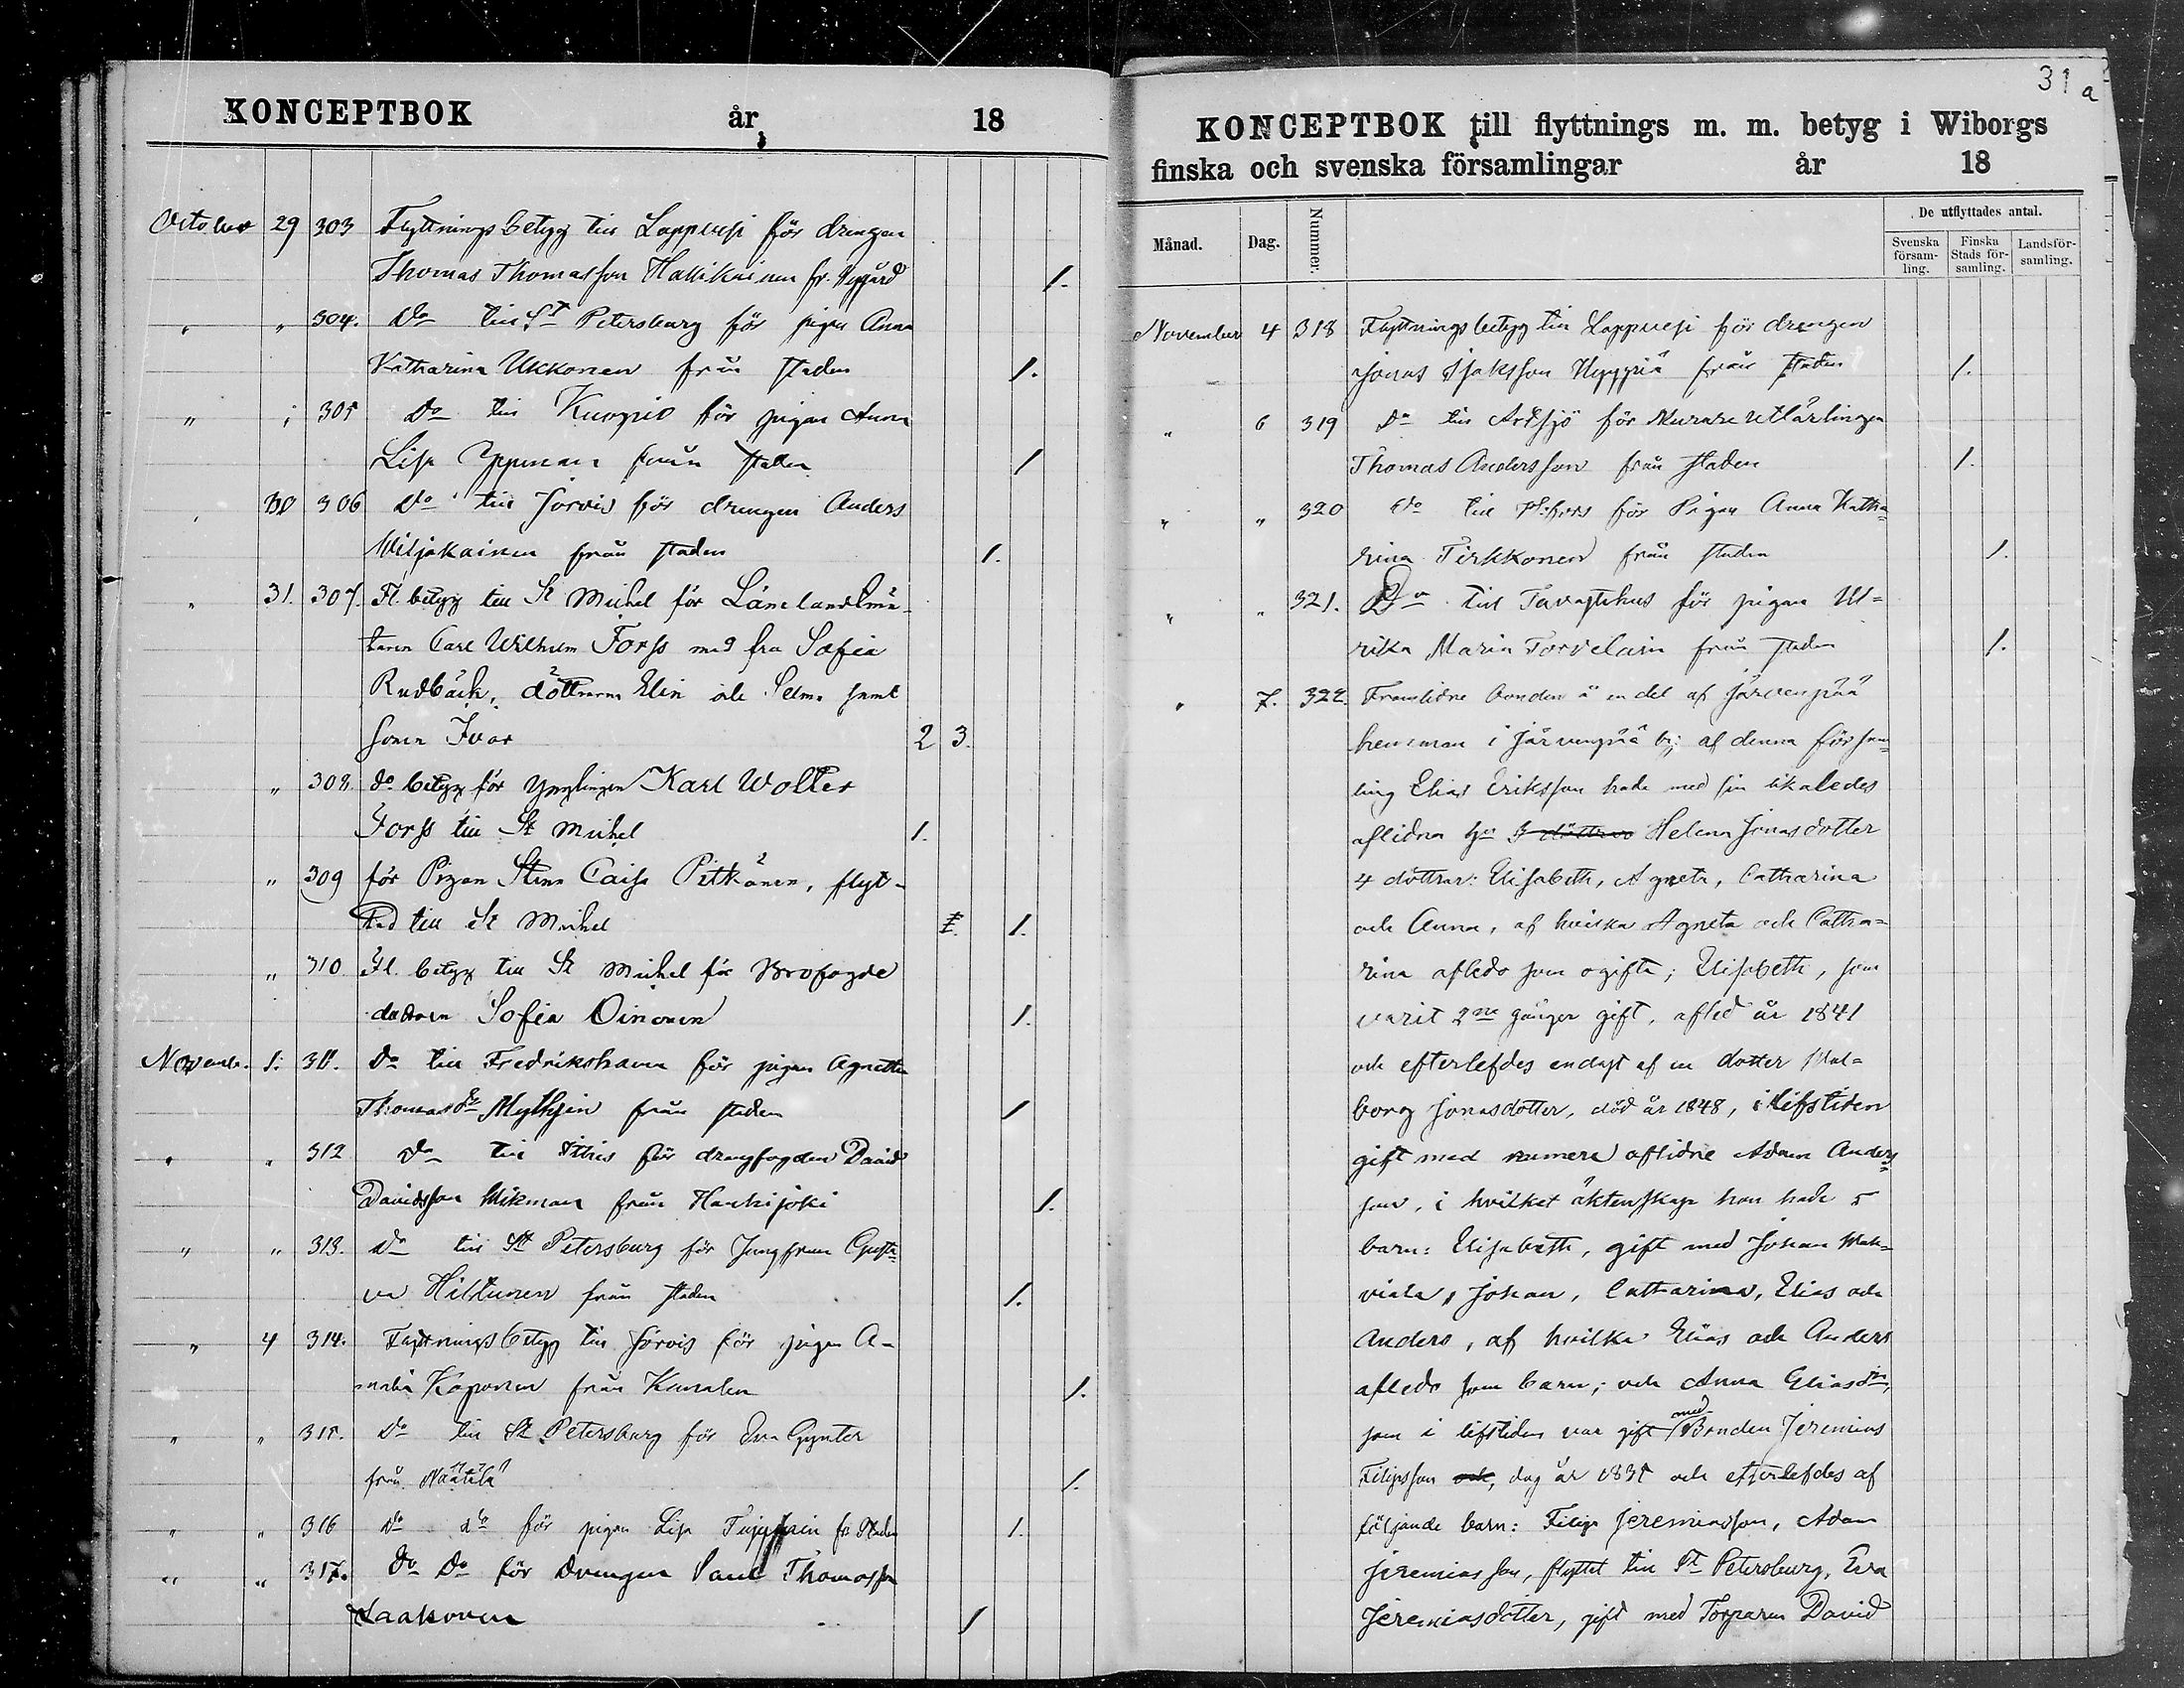 KONCEPTBOK år 18
October 29 303 Flyttningsbetyg till Lappvesi för drengen
Thomas Thomasson Hallikainen fr. 1.
" " 304. Do till St Petersburg för pigan Anna
Katharina Ukkonen från staden 1.
" " 305 Do till Kuopio för pigan Anna
Lisa Yppman från staden 1
" 30 306 Do till Jorois för drengen Anders
Miljakainen från staden 1.
" 31. 307. Fl. betyg till St Michel för Länelandtmä-
taren Carl Wilhelm Forss med fru Sofia
Rudbäck, döttrarna Elin och Selma samt
sonen Ivar 2 3.
" 308. do betyg för Ynglingen Karl Wolter
Forss till St Michel 1.
" 309 för Pigan Stina Caisa Pitkänen, flyt-
tad till St Michel 1.
" 310 Fl. betyg till St Michel för Brofogde
dottren Sofia Oinonen 1.
Novemb. 1. 311. Do till Fredrikshamn för pigan Agnetha
Thomasdr Myllyin från staden 1
" " 312 Do till Ithis för drengfogden David
Davidsson Wikman från Hanhijoki 1.
" " 313. Do till St Petersburg för Jungfrun Gusta-
va Hiltunen från staden 1.
" 4 314. Flyttningsbetyg till Jorois för pigan A-
malia Koponen från 1.
" " 315. Do till St Petersburg för Eva Gynter
från Näätälä 1.
" " 316 Do do för pigan Lisa fr Staden 1.
" " 317. Do Do för Drengen Paul Thomasson
Laakonen 1
31 a
KONCEPTBOK till flyttnings m. m. betyg i Wiborgs
finska och svenska församlingar år 18
Månad. Dag. Nummer. De utflyttades antal.
Svenska församling. Finska Stads församling. Landsförsamling.
November 4 318 Flyttningsbetyg till Lappvesi för drengen
Jonas Isaksson Hyypiä från staden 1.
" 6 319 Do till Artsjö för Murare utlärlingen
Thomas Andersson från staden 1.
" " 320 Do till H:fors för Pigan Anna Katha-
rina Tirkkonen från staden 1.
" " 321. Do till Tavastehus för pigan Ul-
rika Maria Torvelain från staden 1.
" 7. 322. Framlidne bonden å en del af Järvenpää
hemman i Järvenpää by af denna försam-
ling Elias Eriksson hade med sin likaledes
aflidna hu 3 döttrar Helena Jonasdotter
4 döttrar: Elisabeth, Agneta, Catharina
och Anna, af hvilka Agneta och Catha-
rina afledo som ogifta; Elisabeth, som
varit 2ne gånger gift, afled år 1841
och efterlefdes endast af en dotter Wal-
borg Jonasdotter, död år 1848, i lifstiden
gift med numera aflidne Adam Anders-
son, i hvilket äktenskap hon hade 5
barn: Elisabeth, gift med Johan
viala, Johan, Catharina, Elias och
Anders, af hvilka Elias och Anders
afledo som barn; och Anna Eliasdr,
som i lifstiden var gift med Bonden Jeremias
Filipsson och, dog år 1835 och efterlefdes af
följande barn: Filip Jeremiasson, Adam
Jeremiasson, flyttat till St Petersburg, Eva
Jeremiasdotter, gift med Torparen David